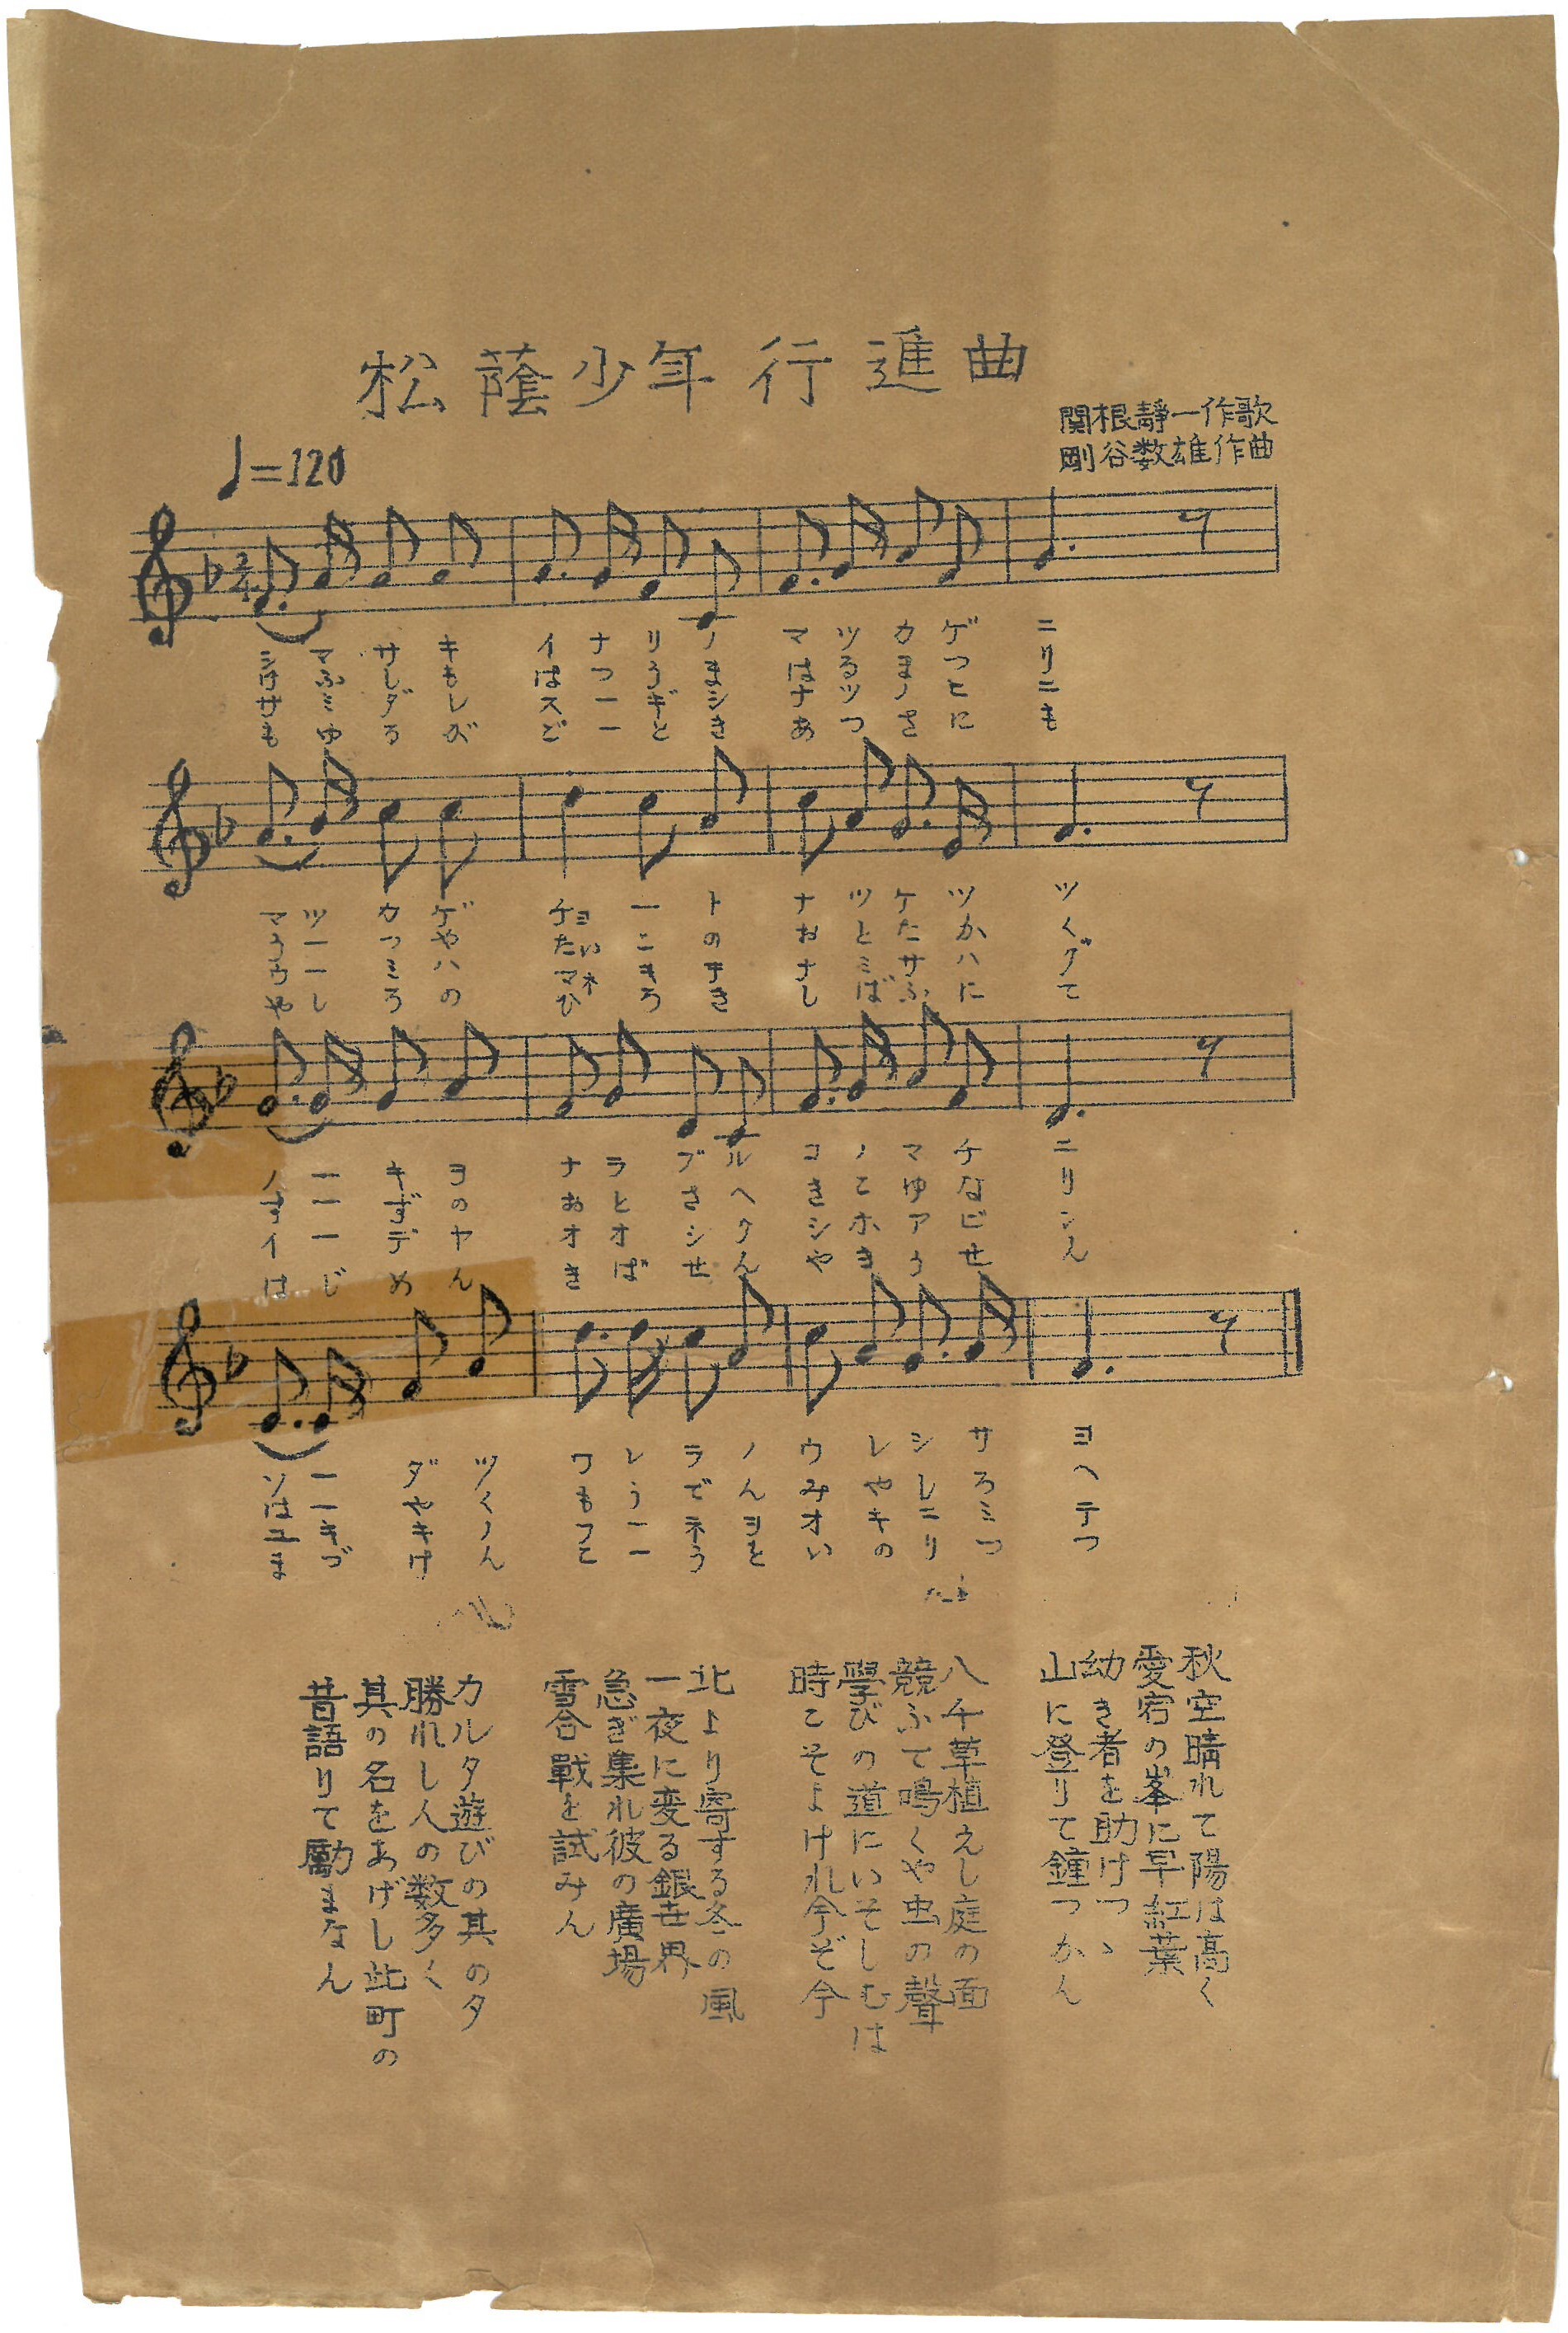 松蔭少年行進曲
関根靜一作歌
剛谷数雄作曲
♩=120
シマサキイナリノマツカゲニ
けふしもはつうまはるまつり
サミダレスーギシナツノヒニ
もゆるがどーときあつさにも
マツカゲチヨートナツケツツ
うーつやたいこのおとたかく
ウーミハマネキキナミサハグ
やしろのひろきしばふにて
ノーキヨナラブルコノマチニ
すーずのおとさへきこゆなり
イーデヤオオシクシホアビン
はじめんきばせんやきうせん
ソーダツワレラノウレシサヨ
はーやくもうでんみやしろへ
ユキキノフーネヲオキニミテ
まづけんこーうといのりつつ
秋空晴れて陽は高く
愛宕の峯に早紅葉
幼き者を助けつゝ
山に登りて鐘つかん
八千草植えし庭の面
競ふて鳴くや虫の聲
學びの道にいそしむは
時こそよけれ今ぞ今
北より寄する冬の風
一夜に変る銀世界
急ぎ集れ彼の廣場
雪合戰を試みん
カルタ遊びの其の夕
勝れし人の数多く
其の名をあげし此町の
昔語りて勵まなん